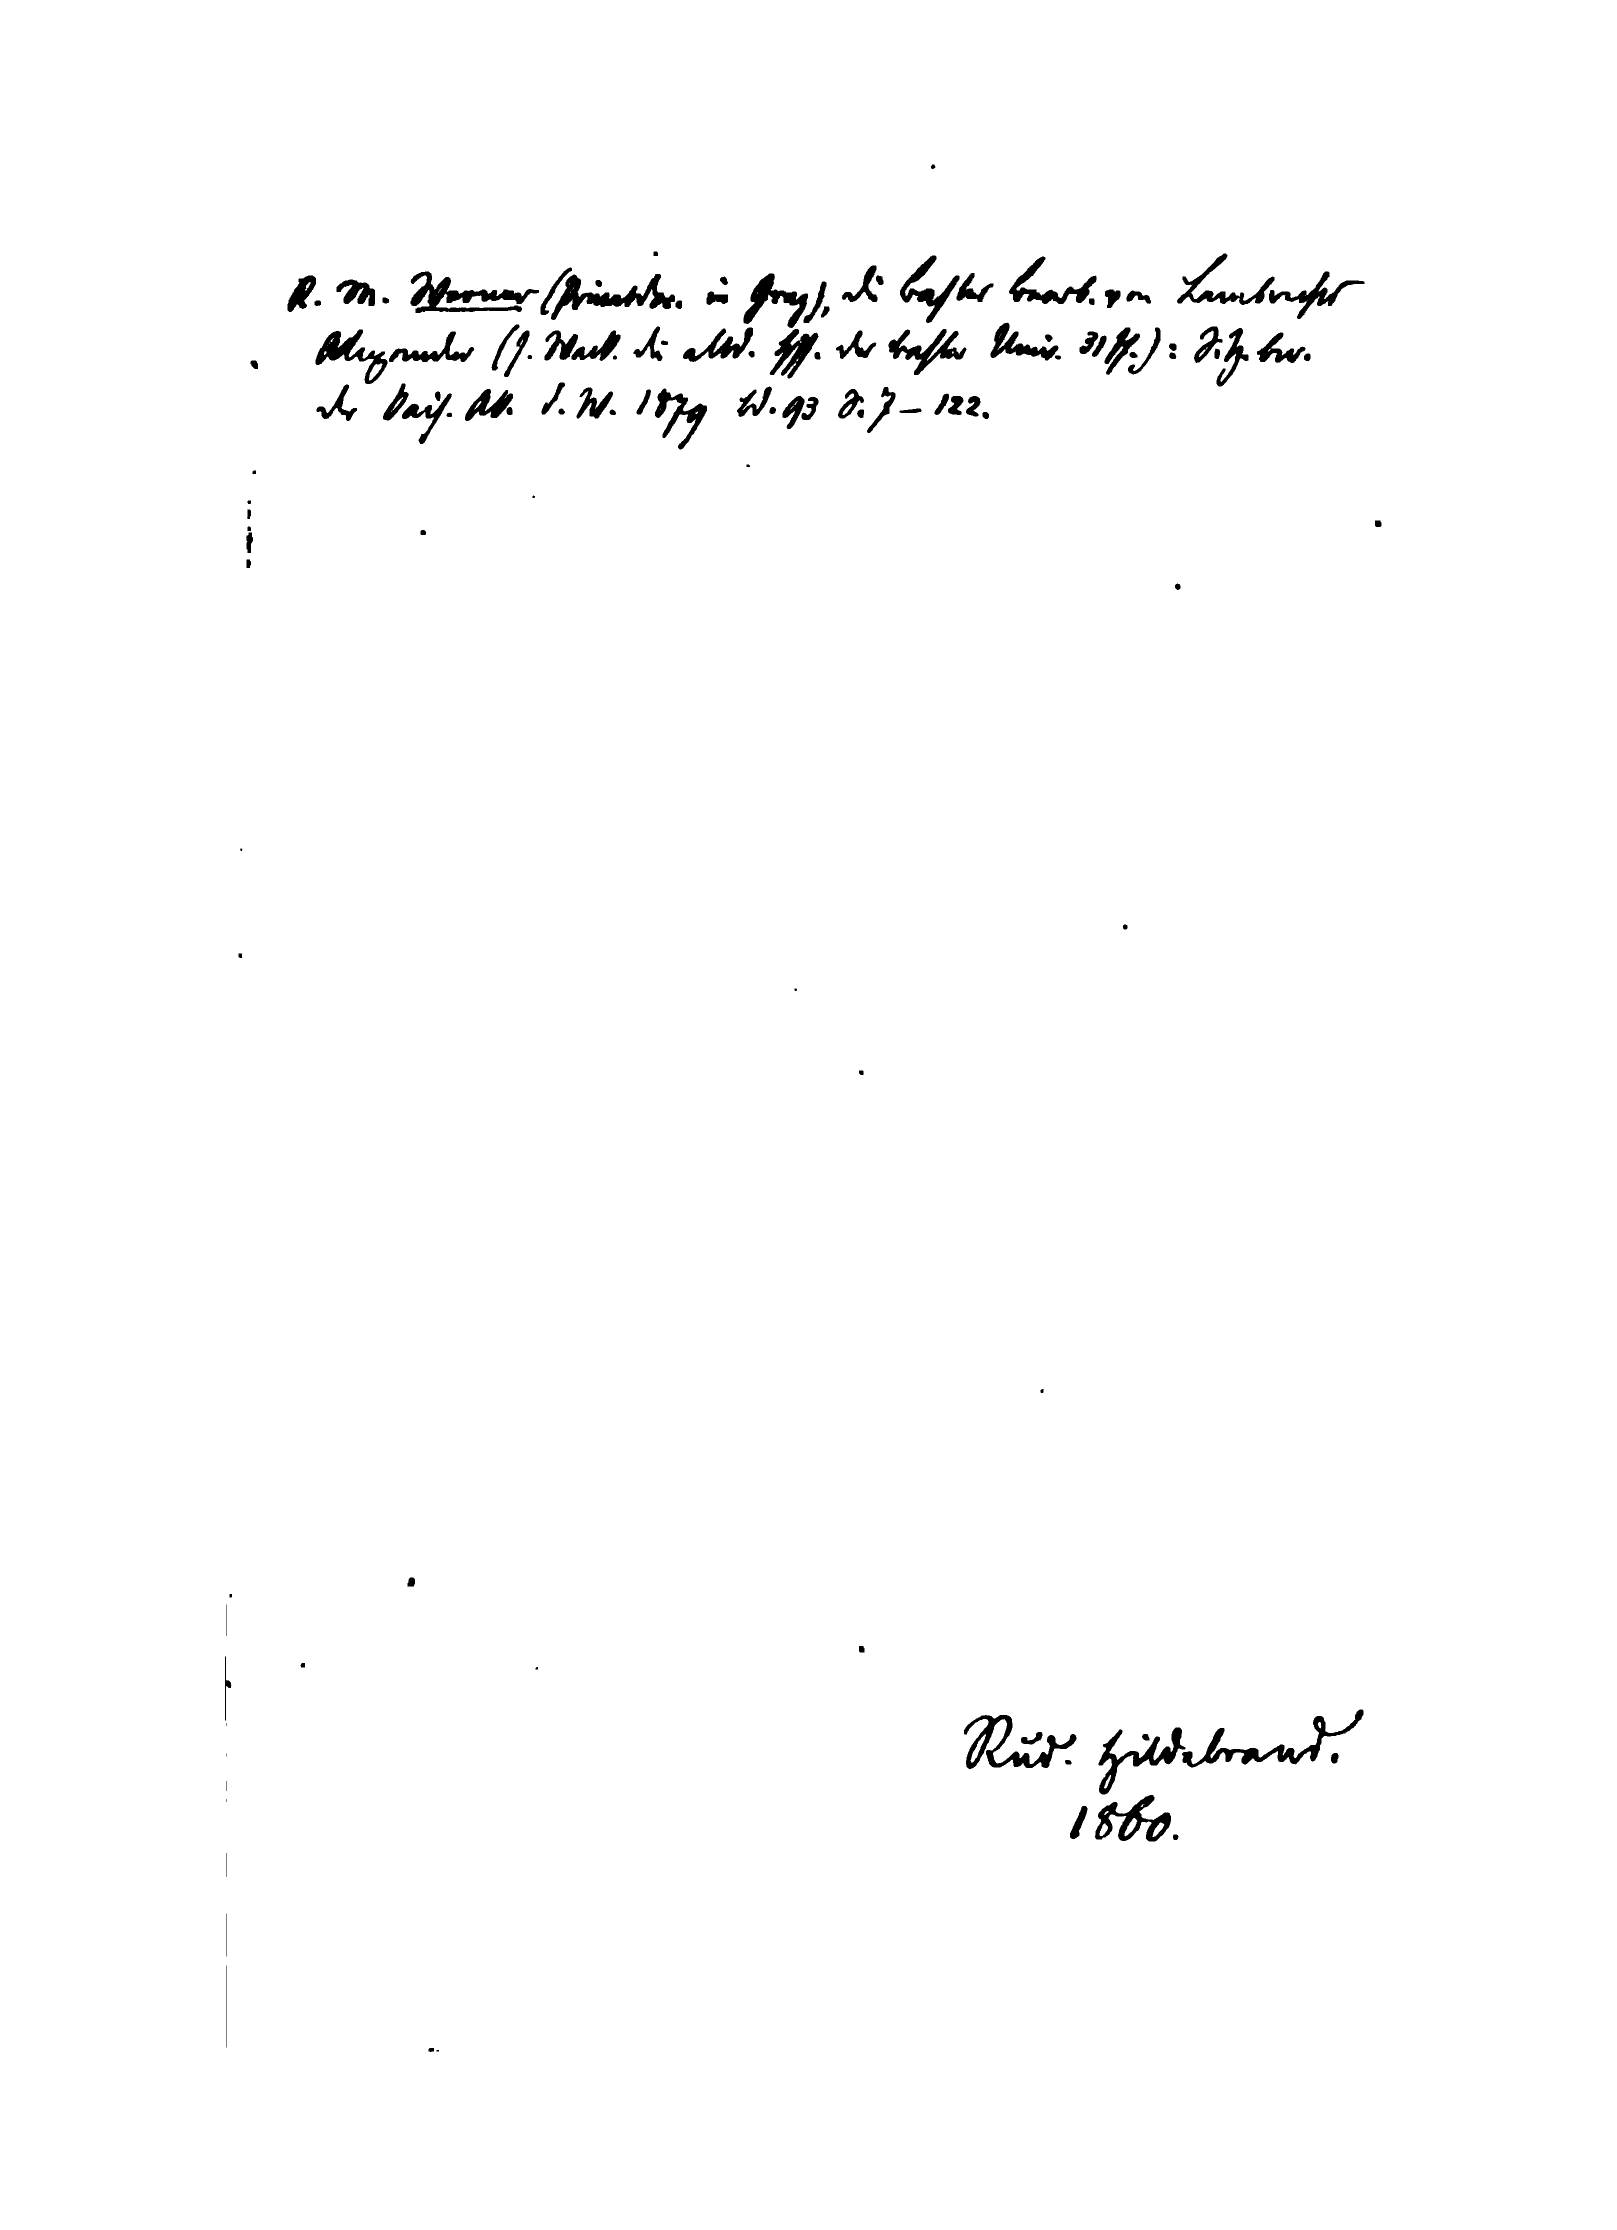 R. M. Werner (Privatdoc. in Graz), die basler bearb. von Lambrechts
Alexander (s. Wack. die altd. hss. der basler Univ. 31 ff.): Sitz. ber.
der kais. Ak. d. W. 1879 bd. 93 S. 7–122.
Rud. Hildebrand.
1860.